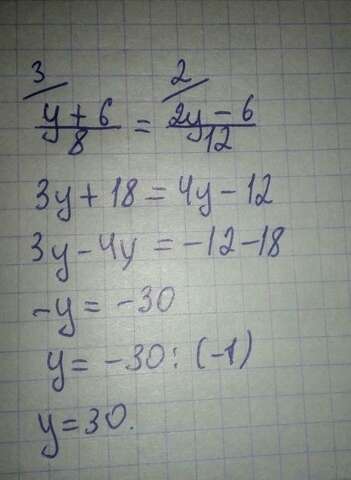 3 2
y + 6 / 8 = 2y - 6 / 12
3y + 18 = 4y - 12
3y - 4y = -12 - 18
-y = -30
y = -30 : (-1)
y = 30.